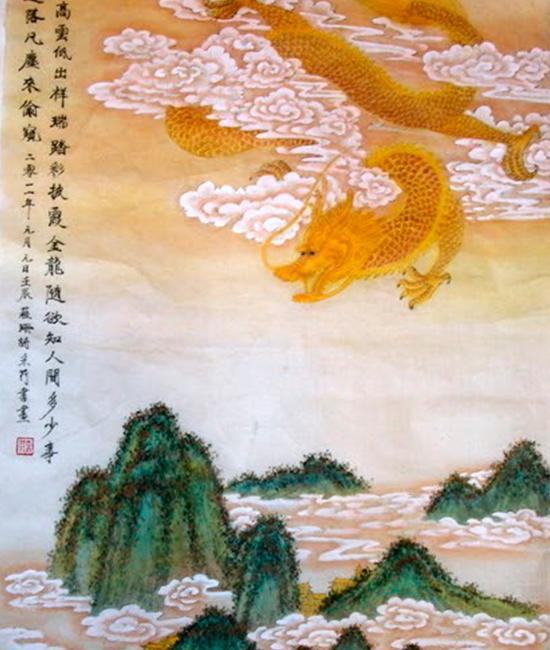 高雲低出祥瑞踏彩披霞金龍隨欲知人間多少事
落凡塵來偷窺 二零一二年元月元日壬辰
書畫